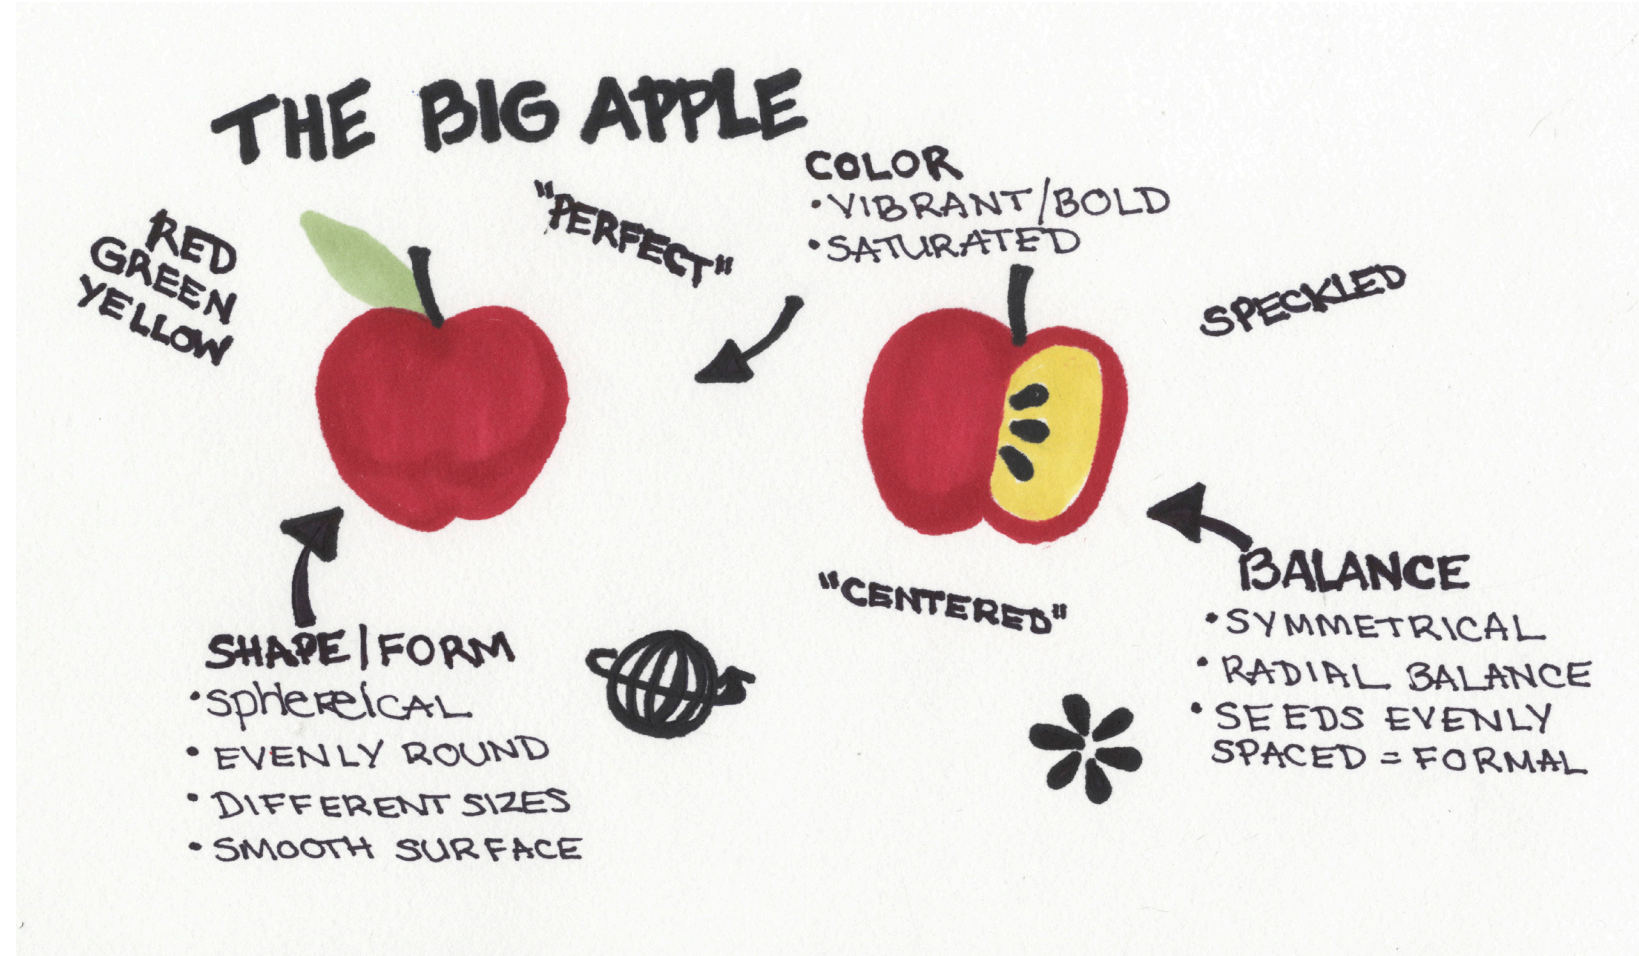 THE BIG APPLE
RED
GREEN
YELLOW
"PERFECT"
COLOR
•VIBRANT/BOLD
•SATURATED
SPECKLED
SHAPE/FORM
•SPHEREICAL
• EVENLY ROUND
• DIFFERENT SIZES
• SMOOTH SURFACE
"CENTERED"
BALANCE
•SYMMETRICAL
• RADIAL BALANCE
• SEEDS EVENLY
SPACED = FORMAL